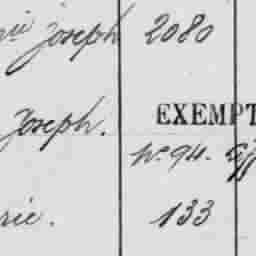 Joseph 2080
Joseph. EXEMPT
No. 94.
rie. 133